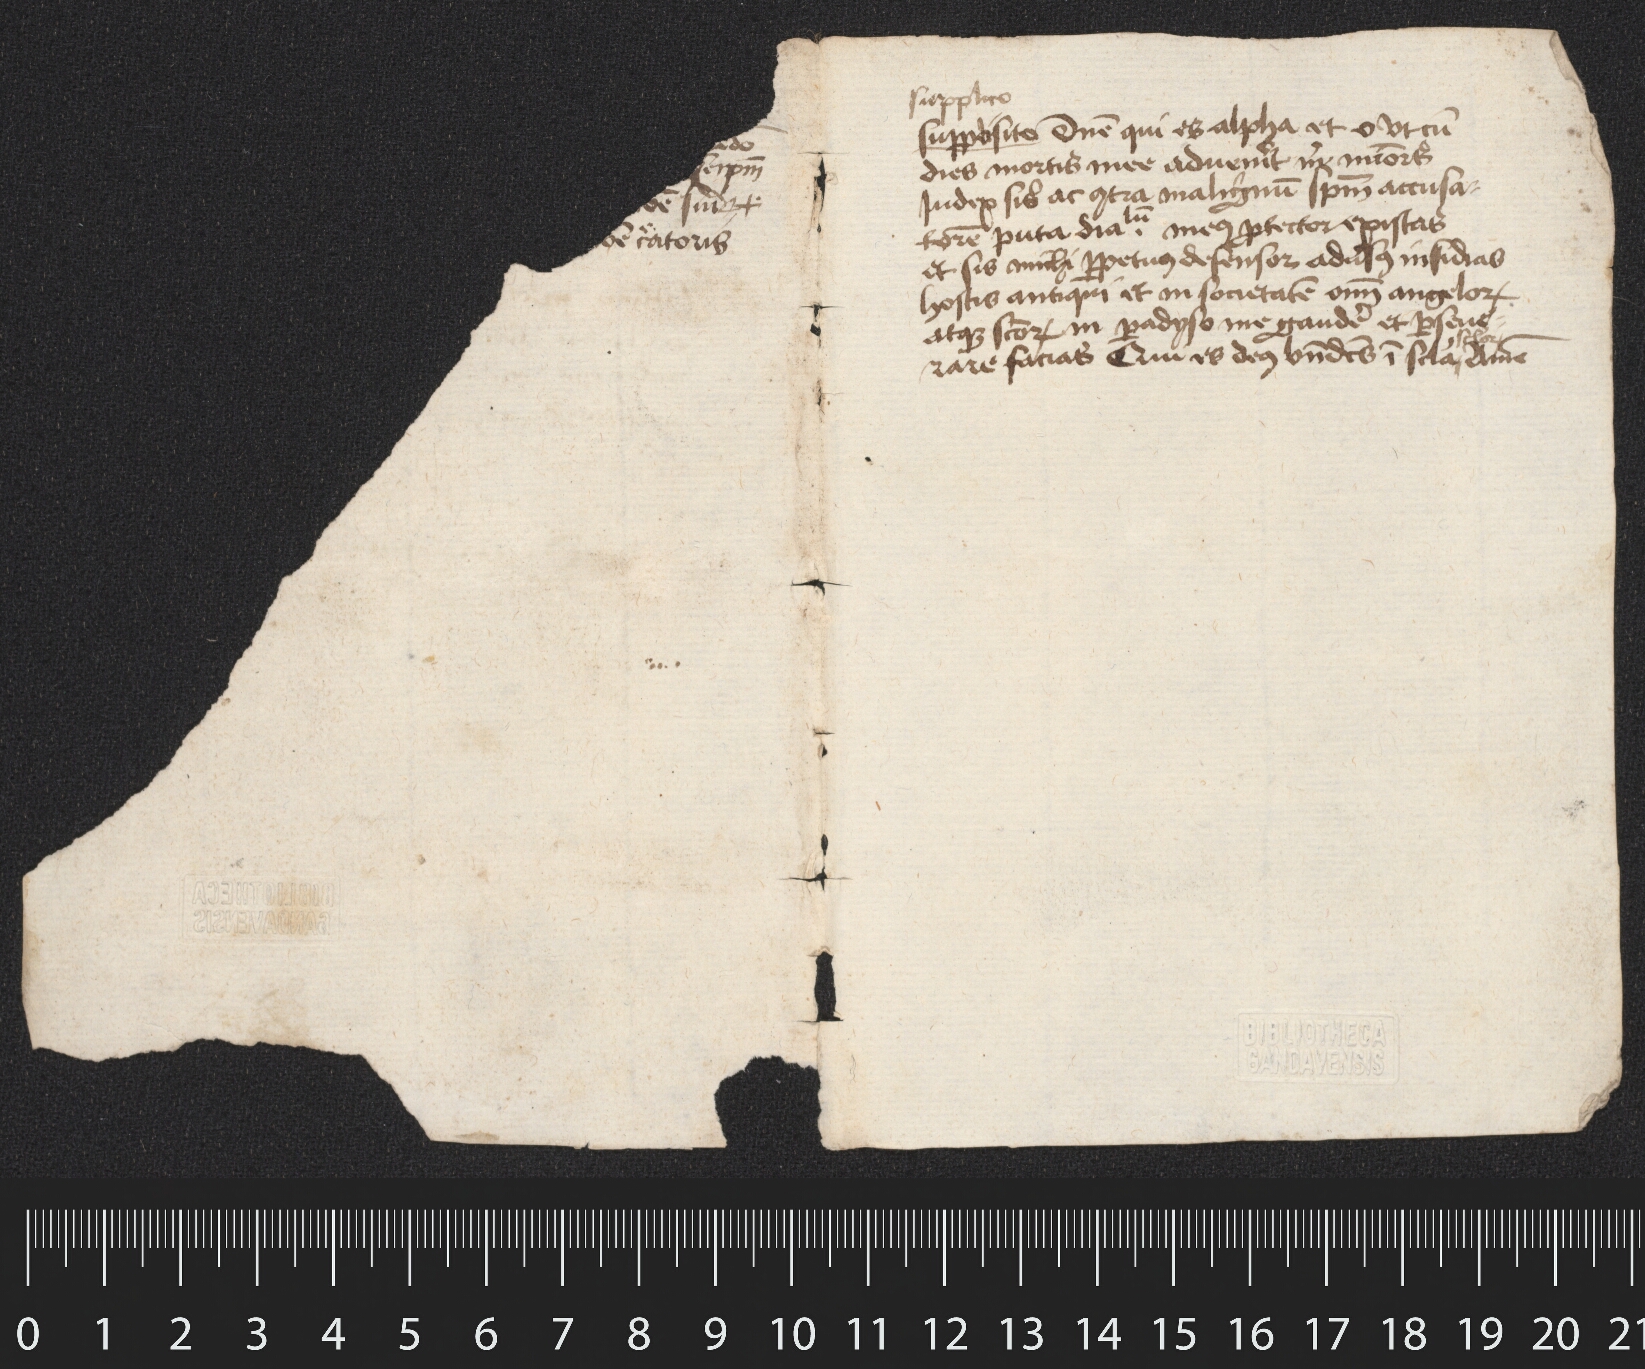 edo
seipm̄
dē sup
bē c̄atoris
supplico
supposito Dnē qui es alpha et o vt cū
dies mortis mee aduen̄it m̄ mīcors
Judex sis ac ꝯtra malignū spm̄ accusa-
torē puta dia lū meꝯ ꝓtector existas
et sis michi ꝑpetuꝯ defensor adūsꝯ insidias
hostis antiqui et in societatē om̄ angeloꝝ
atqꝫ sc̄oꝝ in ꝑadyso me gaudē et ꝑseue-
rare facias Qui es deꝯ bn̄dc̄s ī scl̄a scl̄oꝝ Amē
BIBLIOTHECA
GANDAVENSIS
BIBLIOTHECA
GANDAVENSIS
0 1 2 3 4 5 6 7 8 9 10 11 12 13 14 15 16 17 18 19 20 21